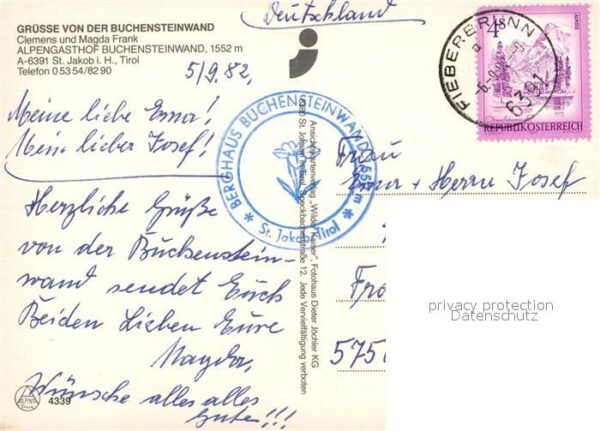 Deutschland
GRÜSSE VON DER BUCHENSTEINWAND
Clemens und Magda Frank
ALPENGASTHOF BUCHENSTEINWAND, 1552 m
A-6391 St. Jakob i. H., Tirol
Telefon 0 53 54 / 82 90
5/9.82,
Meine liebe Erna!
Mein lieber Josef!
Herzliche Grüße
von der Buchenstein-
wand sendet Euch
Beiden Lieben Eure
Magda,
Wünsche alles alles
Gute!!!
4339
BERGHAUS BUCHENSTEINWAND 1552 m
* St. Jakob, Tirol *
Ansichtskartenverlag „Wilder Kaiser“, Fotohaus Dieter Jöchler KG
6380 St. Johann in Tirol, Speckbacherstraße 12. Jede Vervielfältigung verboten
FIEBERBRUNN
6391
4 S
REPUBLIK ÖSTERREICH
Frau
Erna + Herrn Josef
575
privacy protection
Datenschutz